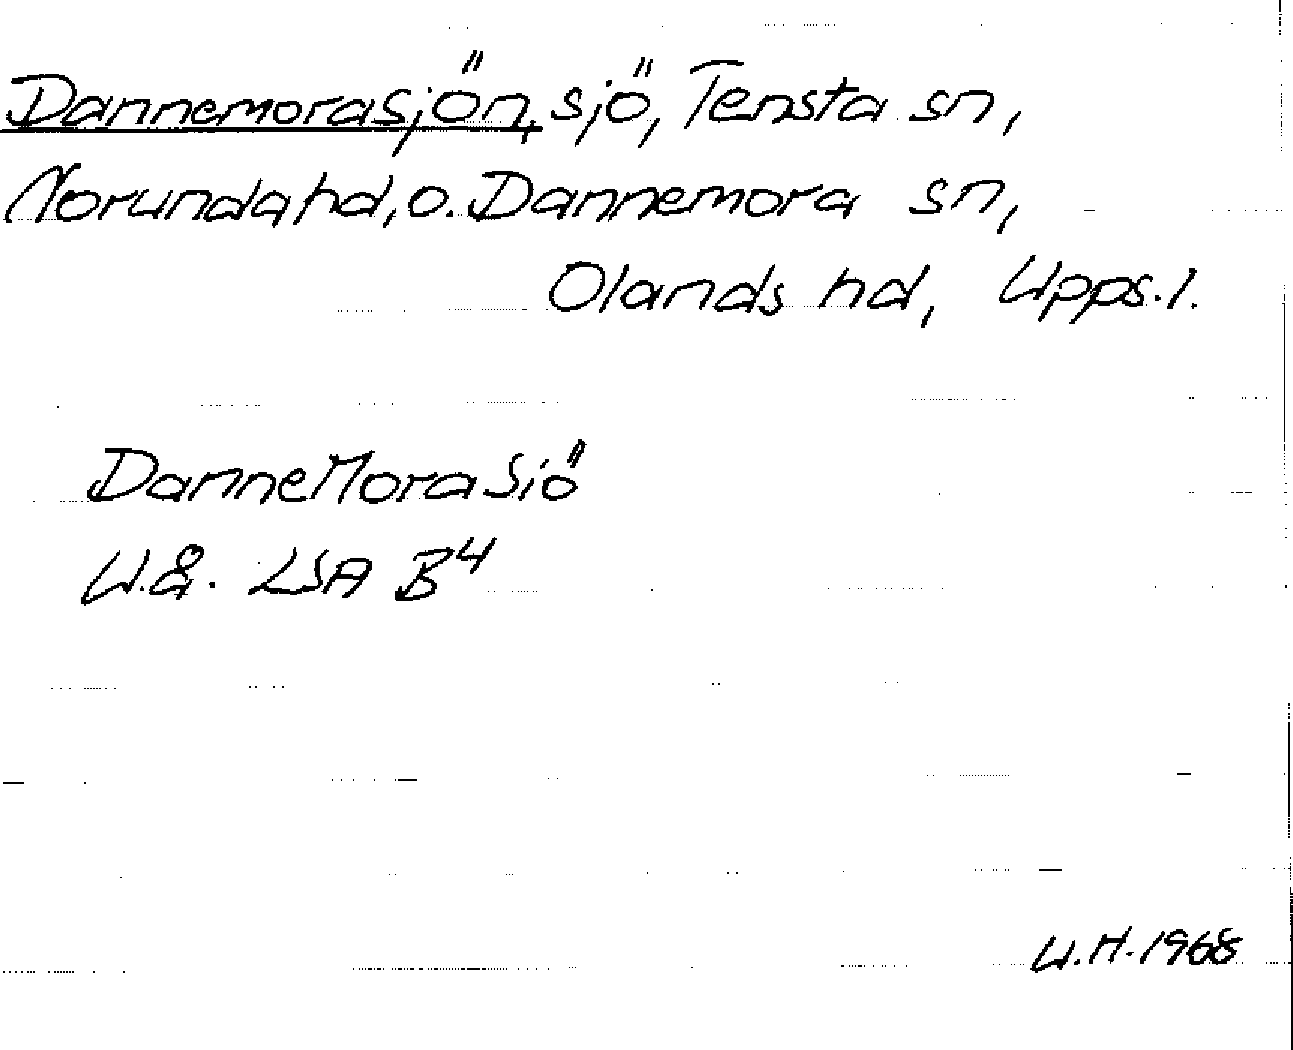 Dannemorasjön, sjö, Tensta sn,
Norunda hd, o. Dannemora sn,
Olands hd, Upps. l.
DanneMora Siö
U.å. LSA B4
U.H. 1968